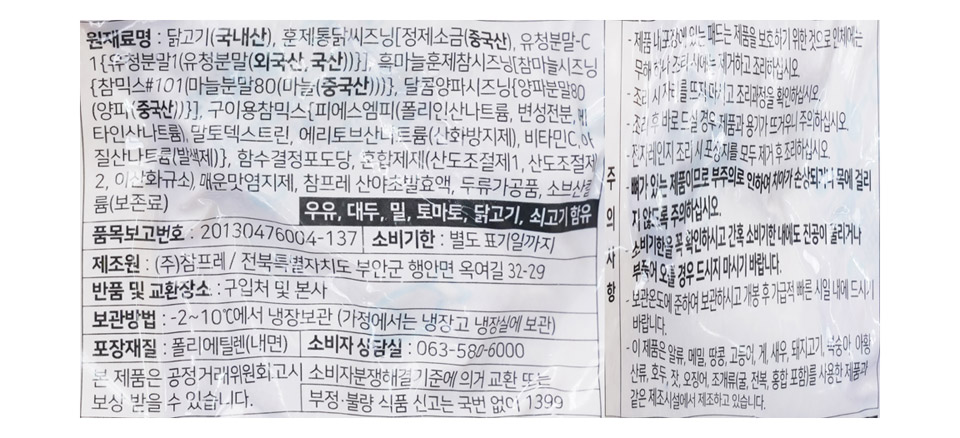 원재료명 : 닭고기(국내산), 훈제통닭씨즈닝[정제소금(중국산), 유청분말-C
1{유청분말1(유청분말(외국산, 국산))}, 흑마늘훈제참시즈닝{참마늘시즈닝
{참믹스#101(마늘분말80(마늘(중국산))}, 달콤양파시즈닝{양파분말80
(양파(중국산))}], 구이용참믹스{피에스엠피(폴리인산나트륨, 변성전분, 메
타인산나트륨), 말토덱스트린, 에리토브산나트륨(산화방지제), 비타민C, 아
질산나트륨(발색제)}, 함수결정포도당, 혼합제제(산도조절제1, 산도조절제
2, 이산화규소), 매운맛염지제, 참프레 산야초발효액, 두류가공품, 소브산칼
륨(보존료)
우유, 대두, 밀, 토마토, 닭고기, 쇠고기 함유
품목보고번호 : 20130476004-137 소비기한 : 별도 표기일까지
제조원 : (주)참프레 / 전북특별자치도 부안군 행안면 옥여길 32-29
반품 및 교환장소 : 구입처 및 본사
보관방법 : -2~10℃에서 냉장보관 (가정에서는 냉장고 냉장실에 보관)
포장재질 : 폴리에틸렌(내면) 소비자 상담실 : 063-580-6000
본 제품은 공정거래위원회 고시 소비자분쟁해결기준에 의거 교환 또는
보상 받을 수 있습니다. 부정·불량 식품 신고는 국번 없이 1399
주의사항
- 제품 내 포장에 있는 패드는 제품을 보호하기 위한 것으로 인체에는
무해하나 조리 시에는 제거하고 조리하십시오.
- 조리 시 자리를 뜨지 마시고 조리과정을 확인하십시오.
- 조리 후 바로 드실 경우 제품과 용기가 뜨거우니 주의하십시오.
- 전자레인지 조리 시 포장지를 모두 제거 후 조리하십시오.
- 뼈가 있는 제품이므로 부주의로 인하여 치아가 손상되거나 목에 걸리
지 않도록 주의하십시오.
소비기한을 꼭 확인하시고 간혹 소비기한 내에도 진공이 풀리거나
부풀어 오를 경우 드시지 마시기 바랍니다.
- 보관온도에 준하여 보관하시고 개봉 후 가급적 빠른 시일 내에 드시기
바랍니다.
- 이 제품은 알류, 메밀, 땅콩, 고등어, 게, 새우, 돼지고기, 복숭아, 아황
산류, 호두, 잣, 오징어, 조개류(굴, 전복, 홍합 포함)를 사용한 제품과
같은 제조시설에서 제조하고 있습니다.